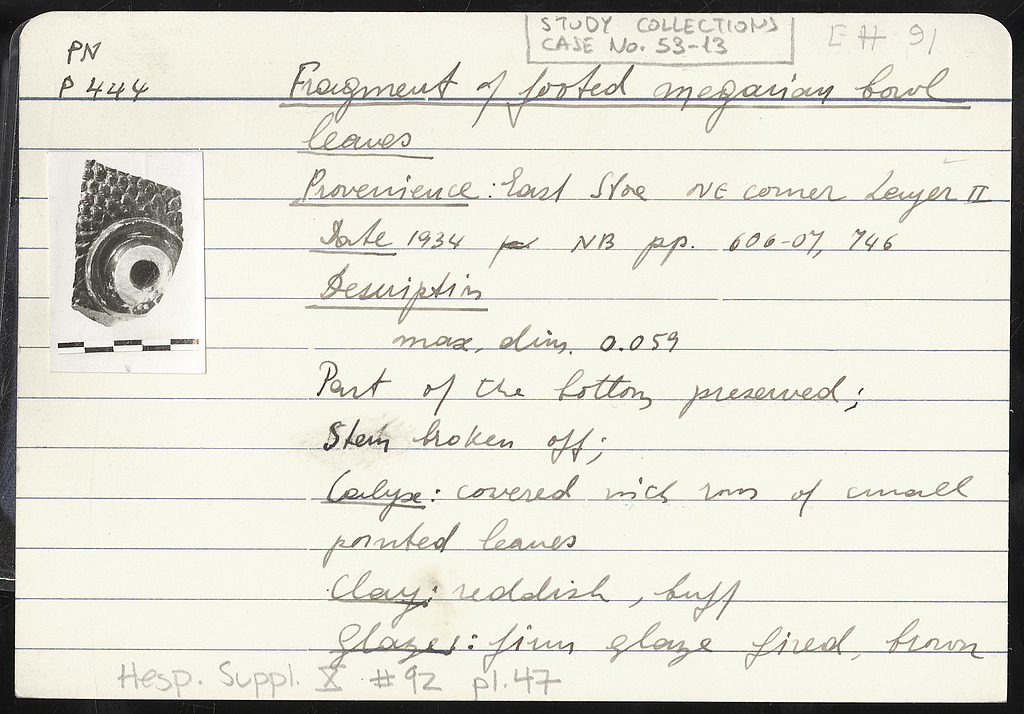 STUDY COLLECTIONS
CASE No. 53-13
E# 91
PN
P 444
Fragment of footed megarian bowl
leaves
Provenience: East Stoa NE corner Layer II
Date 1934 NB pp. 606-07, 746
Description
max. dim. 0.059
Part of the bottom preserved;
Stem broken off;
Calyx: covered with rows of small
pointed leaves
Clay: reddish, buff
Glaze: firm glaze fired, brown
Hesp. Suppl. X #92 pl.47